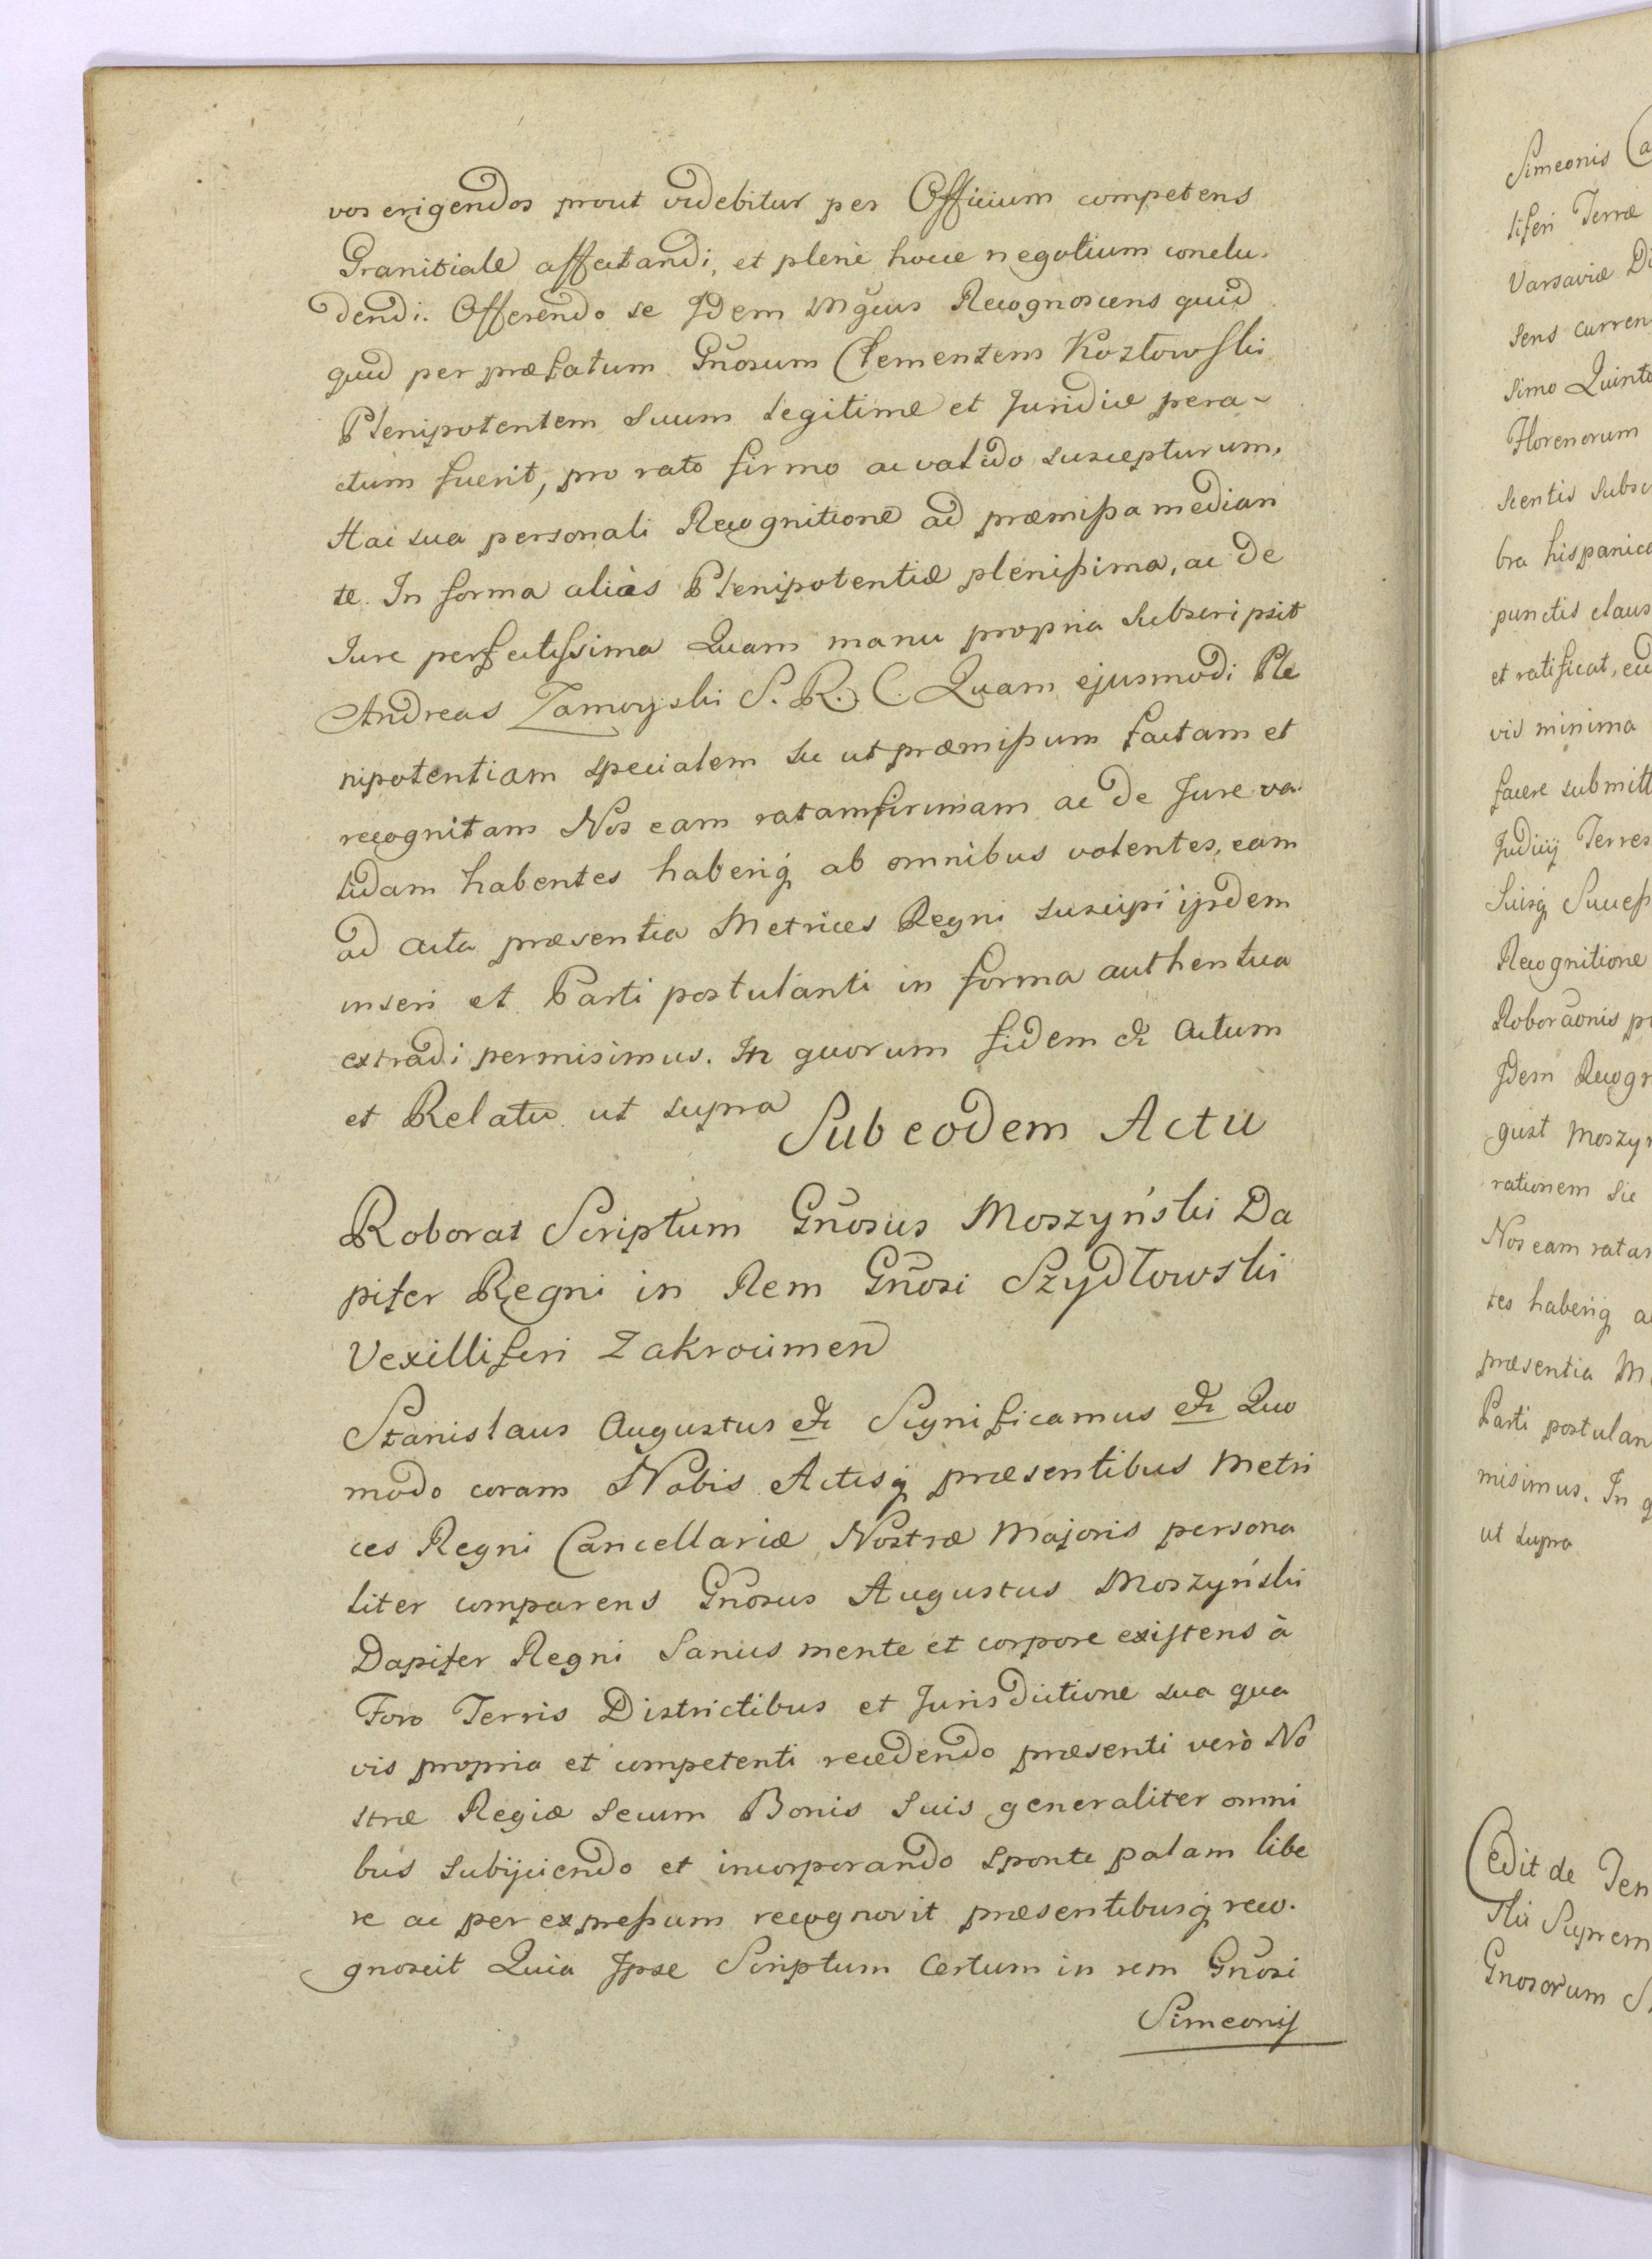 vos erigendos prout videbitur per Officium competens
Granitiale affectandi, et plenè hocce negotium conclu-
dendi. Offerendo se Idem Mgcus Recognoscens quid
quid per præfatum Gnosum Clementem Kozłowski
Plenipotentem suum legitime et Juridice pera-
ctum fuerit, pro rato firmo ac valido suscepturum.
Hac sua personali Recognitione ad præmissa median
te. In forma aliàs Plenipotentiæ plenissima, ac de
Jure perfectissima Quam manu propria subscripsit
Andreas Zamoyski S. R. C. Quam ejusmodi Ple
nipotentiam specialem sic ut præmissum factam et
recognitam Nos eam ratam firmam ac de Jure va-
lidam habentes haberiq ab omnibus volentes, eam
ad acta præsentia Metrices Regni suscipi ijsdem
inseri et Parti postulanti in forma authentica
extradi permisimus. In quorum fidem & Actum
et Relatio ut supra
Sub eodem Actu
Roborat Scriptum Gnosus Moszyński Da
pifer Regni in Rem Gnosi Szydłowski
Vexilliferi Zakrocimen
Stanislaus Augustus & Significamus & Quo
modo coram Nobis Actisq præsentibus Metri
ces Regni Cancellariæ Nostræ Majoris persona
liter comparens Gnosus Augustus Moszyński
Dapifer Regni Sanus mente et corpore existens à
Foro Terris Districtibus et Jurisdictione sua qua
vis propria et competenti recedendo præsenti verò No
stræ Regiæ secum Bonis suis generaliter omni
bus subijciendo et incorporando sponte palam libe
re ac per expressum recognovit præsentibusq reco-
gnoscit Quia Ipse Scriptum Certum in rem Gnosi
Simeonis
Simeonis
liferi Terræ
Varsaviæ
sens curren
simo Quinto
Florenorum
scentis subsc
bra hispanica
punctis claus
et ratificat,
vis minima
facere submitt
Judicij Terres
Suisq Success
Recognitione
Roboraonis
Idem Recogn
gust Moszyn
rationem sic
Nos eam ratam
tes haberiq a
præsentia M
Parti postulan
misimus. In q
ut supra
Cedit de
Supremi
Gnosorum